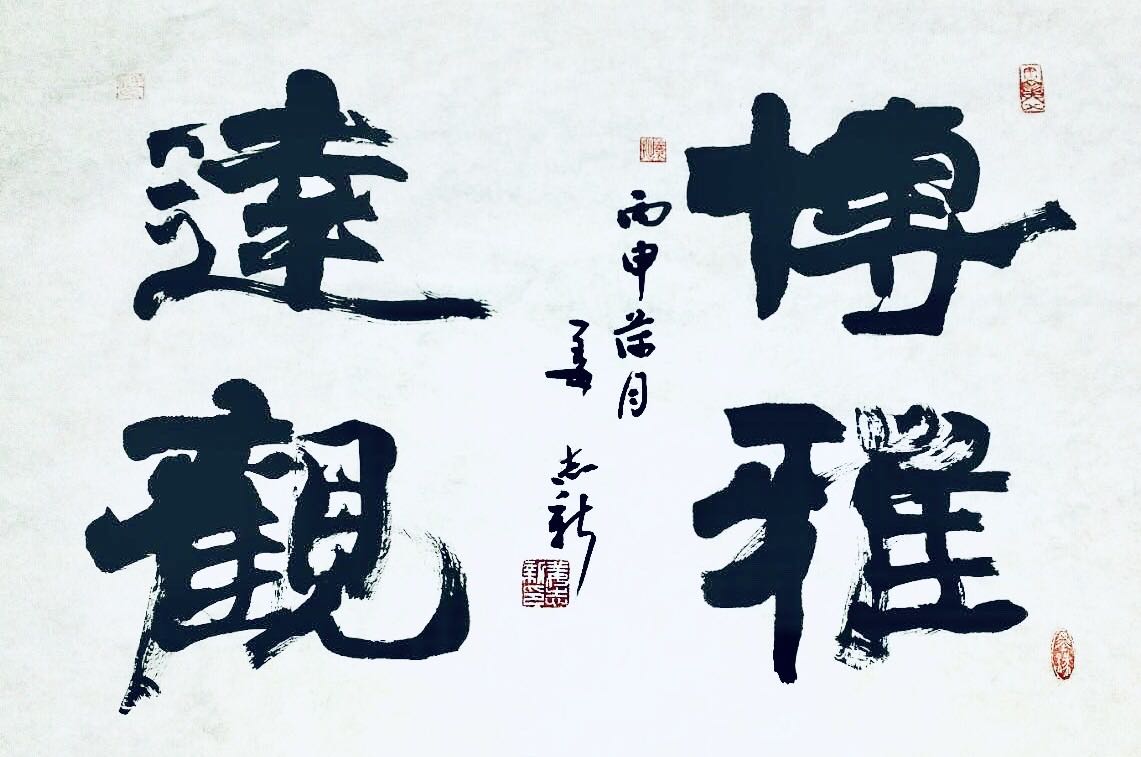 博雅
達觀
丙申 月
姜志新